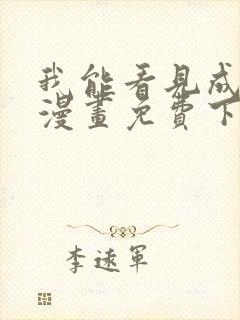 我能看見成
漫畫免費下
李遠軍